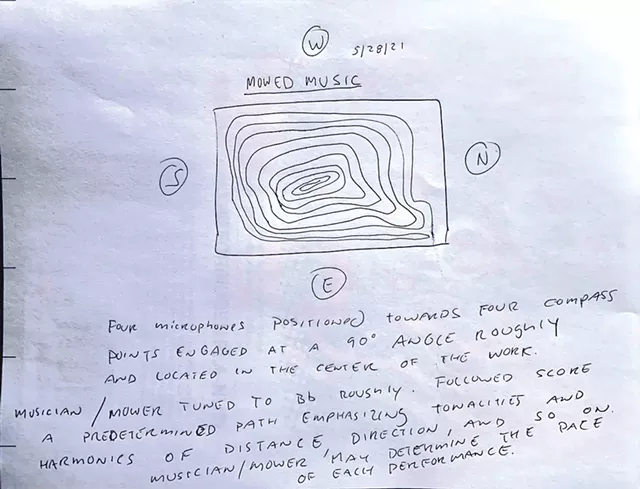 W
5/28/21
MOWED MUSIC
S
N
E
FOUR MICROPHONES POSITIONED TOWARDS FOUR COMPASS
POINTS ENGAGED AT A 90° ANGLE ROUGHLY
AND LOCATED IN THE CENTER OF THE WORK.
MUSICIAN/MOWER TUNED TO Bb ROUGHLY. FOLLOWED SCORE
A PREDETERMINED PATH EMPHASIZING TONALITIES AND
HARMONICS OF DISTANCE, DIRECTION, AND SO ON.
MUSICIAN/MOWER MAY DETERMINE THE PACE
OF EACH PERFORMANCE.